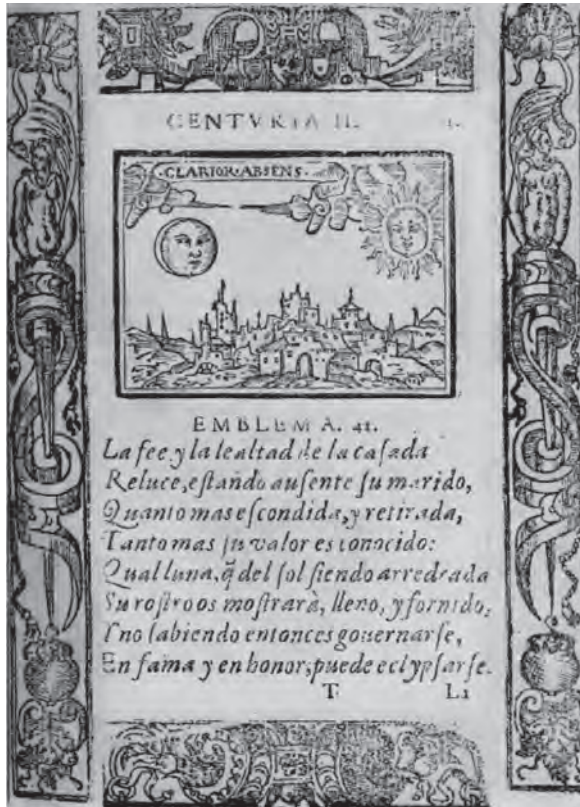 CENTVRIA II.
·CLARIOR·ABSENS·
EMBLEMA. 41.
La fee y la lealtad de la caſada
Reluce, eſtãdo auſente ſu marido,
Quanto mas eſcondida, y retirada,
Tanto mas ſu valor es conocido:
Qual luna, q̃ del ſol ſiendo arredrada
Su roſtro os moſtrarà, lleno, y fornido,
Y no ſabiendo entonces gouernarſe,
En fama y en honor, puede eclypſarſe.
T Li